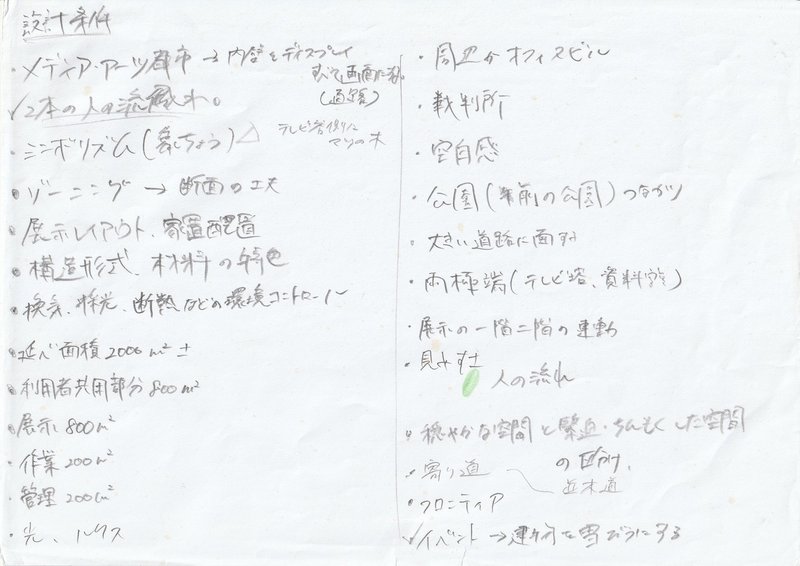 設計条件
・メディア・アーツ都市→内容をディスプレイ
(道路)
✓2本の人の流れ。
テレビ塔側に
マツの木
・シンボリズム(象ちょう)△
・ゾーニング→断面の工夫
・展示レイアウト、家置配置
・構造形式、材料の特色
・換気、採光、断熱などの環境コントロール
・延べ面積2000m²±
・利用者共用部分800m²
・展示800m²
・作業200m²
・管理200m²
・光、ルクス
・周辺がオフィスビル
・裁判所
・空白感
・公園(駅前の公園)つながり
・大きい道路に面す
・両極端(テレビ塔、資料館)
・展示の一階二階の連動
・見わす
人の流れ
・穏やかな空間と緊迫・ちんもくした空間
の区分け、
・寄り道
並木道
・フロンティア
✓イベント→